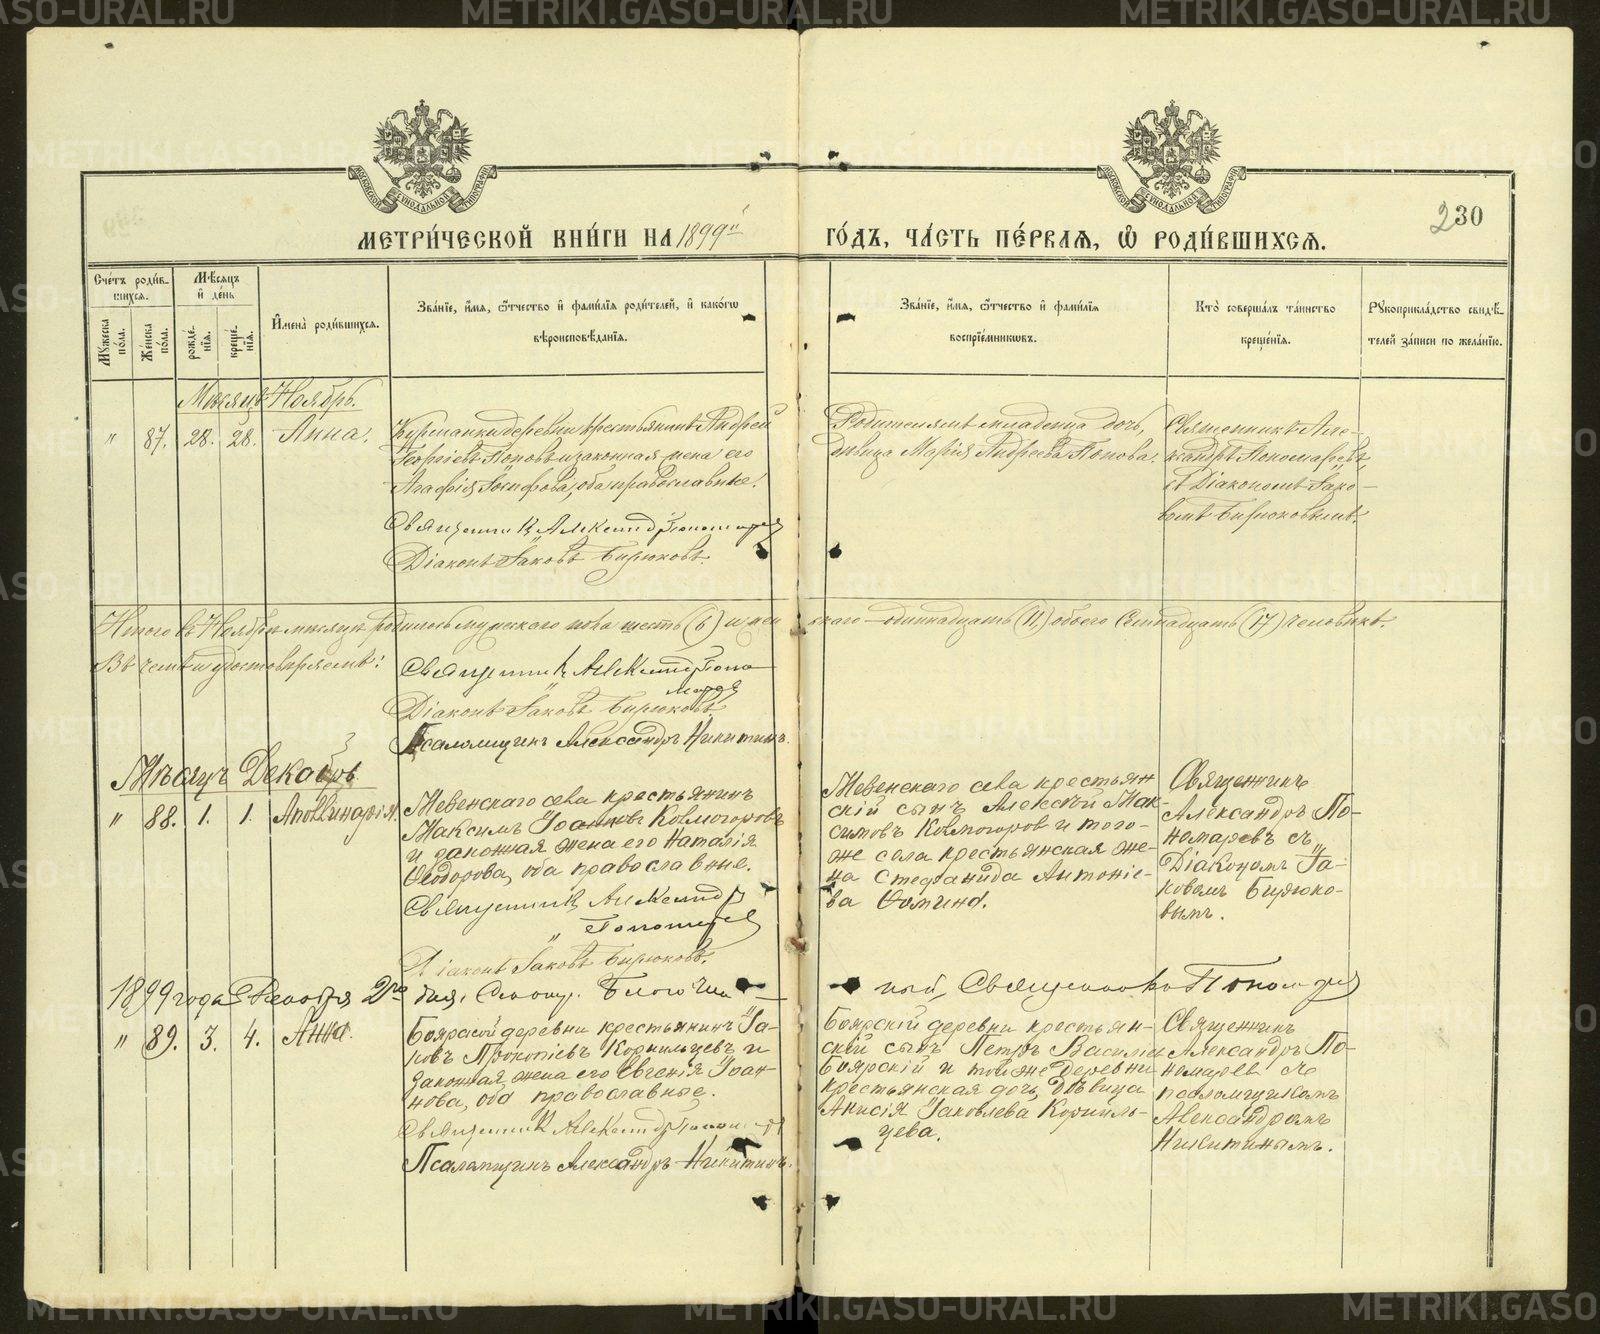 МЕТРИ́ЧЕСКОЙ КНИ́ГИ НА 1899й ГО́ДЪ, ЧА́СТЬ ПЕ́РВАЯ, Ѽ РОДИ́ВШИХСЯ.
230
Счетъ родив-
шихся.
Мужеска пола.
Женска пола.
Мѣсяцъ и день
рожде-
нія.
креще-
нія.
Имена родившихся.
Званіе, имя, отчество и фамилія родителей, и какого
вѣроисповѣданія.
Званіе, имя, отчество и фамилія
воспріемниковъ.
Кто совершалъ таинство
крещенія.
Рукоприкладство свидѣ-
телей записи по желанію.
Мѣсяцъ Ноябрь.
" 87. 28. 28. Анна.
деревни крестьянинъ Андрей
Георгіевъ Поповъ и законная жена его
Агафія Іосифова, оба православные.
Священникъ Александръ Пономаревъ
Діаконъ Іаковъ Бирюковъ.
Родителямъ младенца дочь,
дѣвица Марія Андреева Попова.
Священникъ Але-
ксандръ Пономаревъ
съ Діакономъ Іако-
вомъ Бирюковымъ.
Итого въ Ноябрѣ мѣсяцѣ родилось мужескаго пола шесть (6) и женскаго одиннадцать (11) обоего семнадцать (17) человѣкъ.
Въ чемъ и удостовѣряемъ:
Священникъ Александръ Поно
маревъ
Діаконъ Іаковъ Бирюковъ
Псаломщикъ Александръ Никитинъ.
Мѣсяцъ Декабрь
" 88. 1. 1. Аполлинарія.
Невенскаго села крестьянинъ
Максимъ Іоанновъ Колмогоровъ
и законная жена его Наталія
Ѳеодорова, оба православные.
Священникъ Александръ
Пономаревъ
Діаконъ Іаковъ Бирюковъ.
Невенскаго села крестьян-
скій сынъ Алексѣй Мак-
симовъ Колмогоровъ и того-
же села крестьянская же-
на Стефанида Антоніе-
ва Ѳомина.
Священникъ
Александръ По-
номаревъ съ
Діакономъ Іа-
ковомъ Бирюко-
вымъ.
1899 года Декабря 2го
Священникъ Пономарев
" 89. 3. 4. Анна.
Боярской деревни крестьянинъ Іа-
ковъ Прокопіевъ Корнильцевъ и
законная жена его Евгенія Іоан-
нова, оба православные.
Священникъ Александръ Пономарев
Псаломщикъ Александръ Никитинъ.
Боярскій деревни крестьян-
скій сынъ Петръ Василіев
Боярскій и той же деревни
крестьянская дочь, дѣвица
Анисія Іаковлева Корниль-
цева.
Священникъ
Александръ По-
номаревъ съ
псаломщикомъ
Александромъ
Никитинымъ.